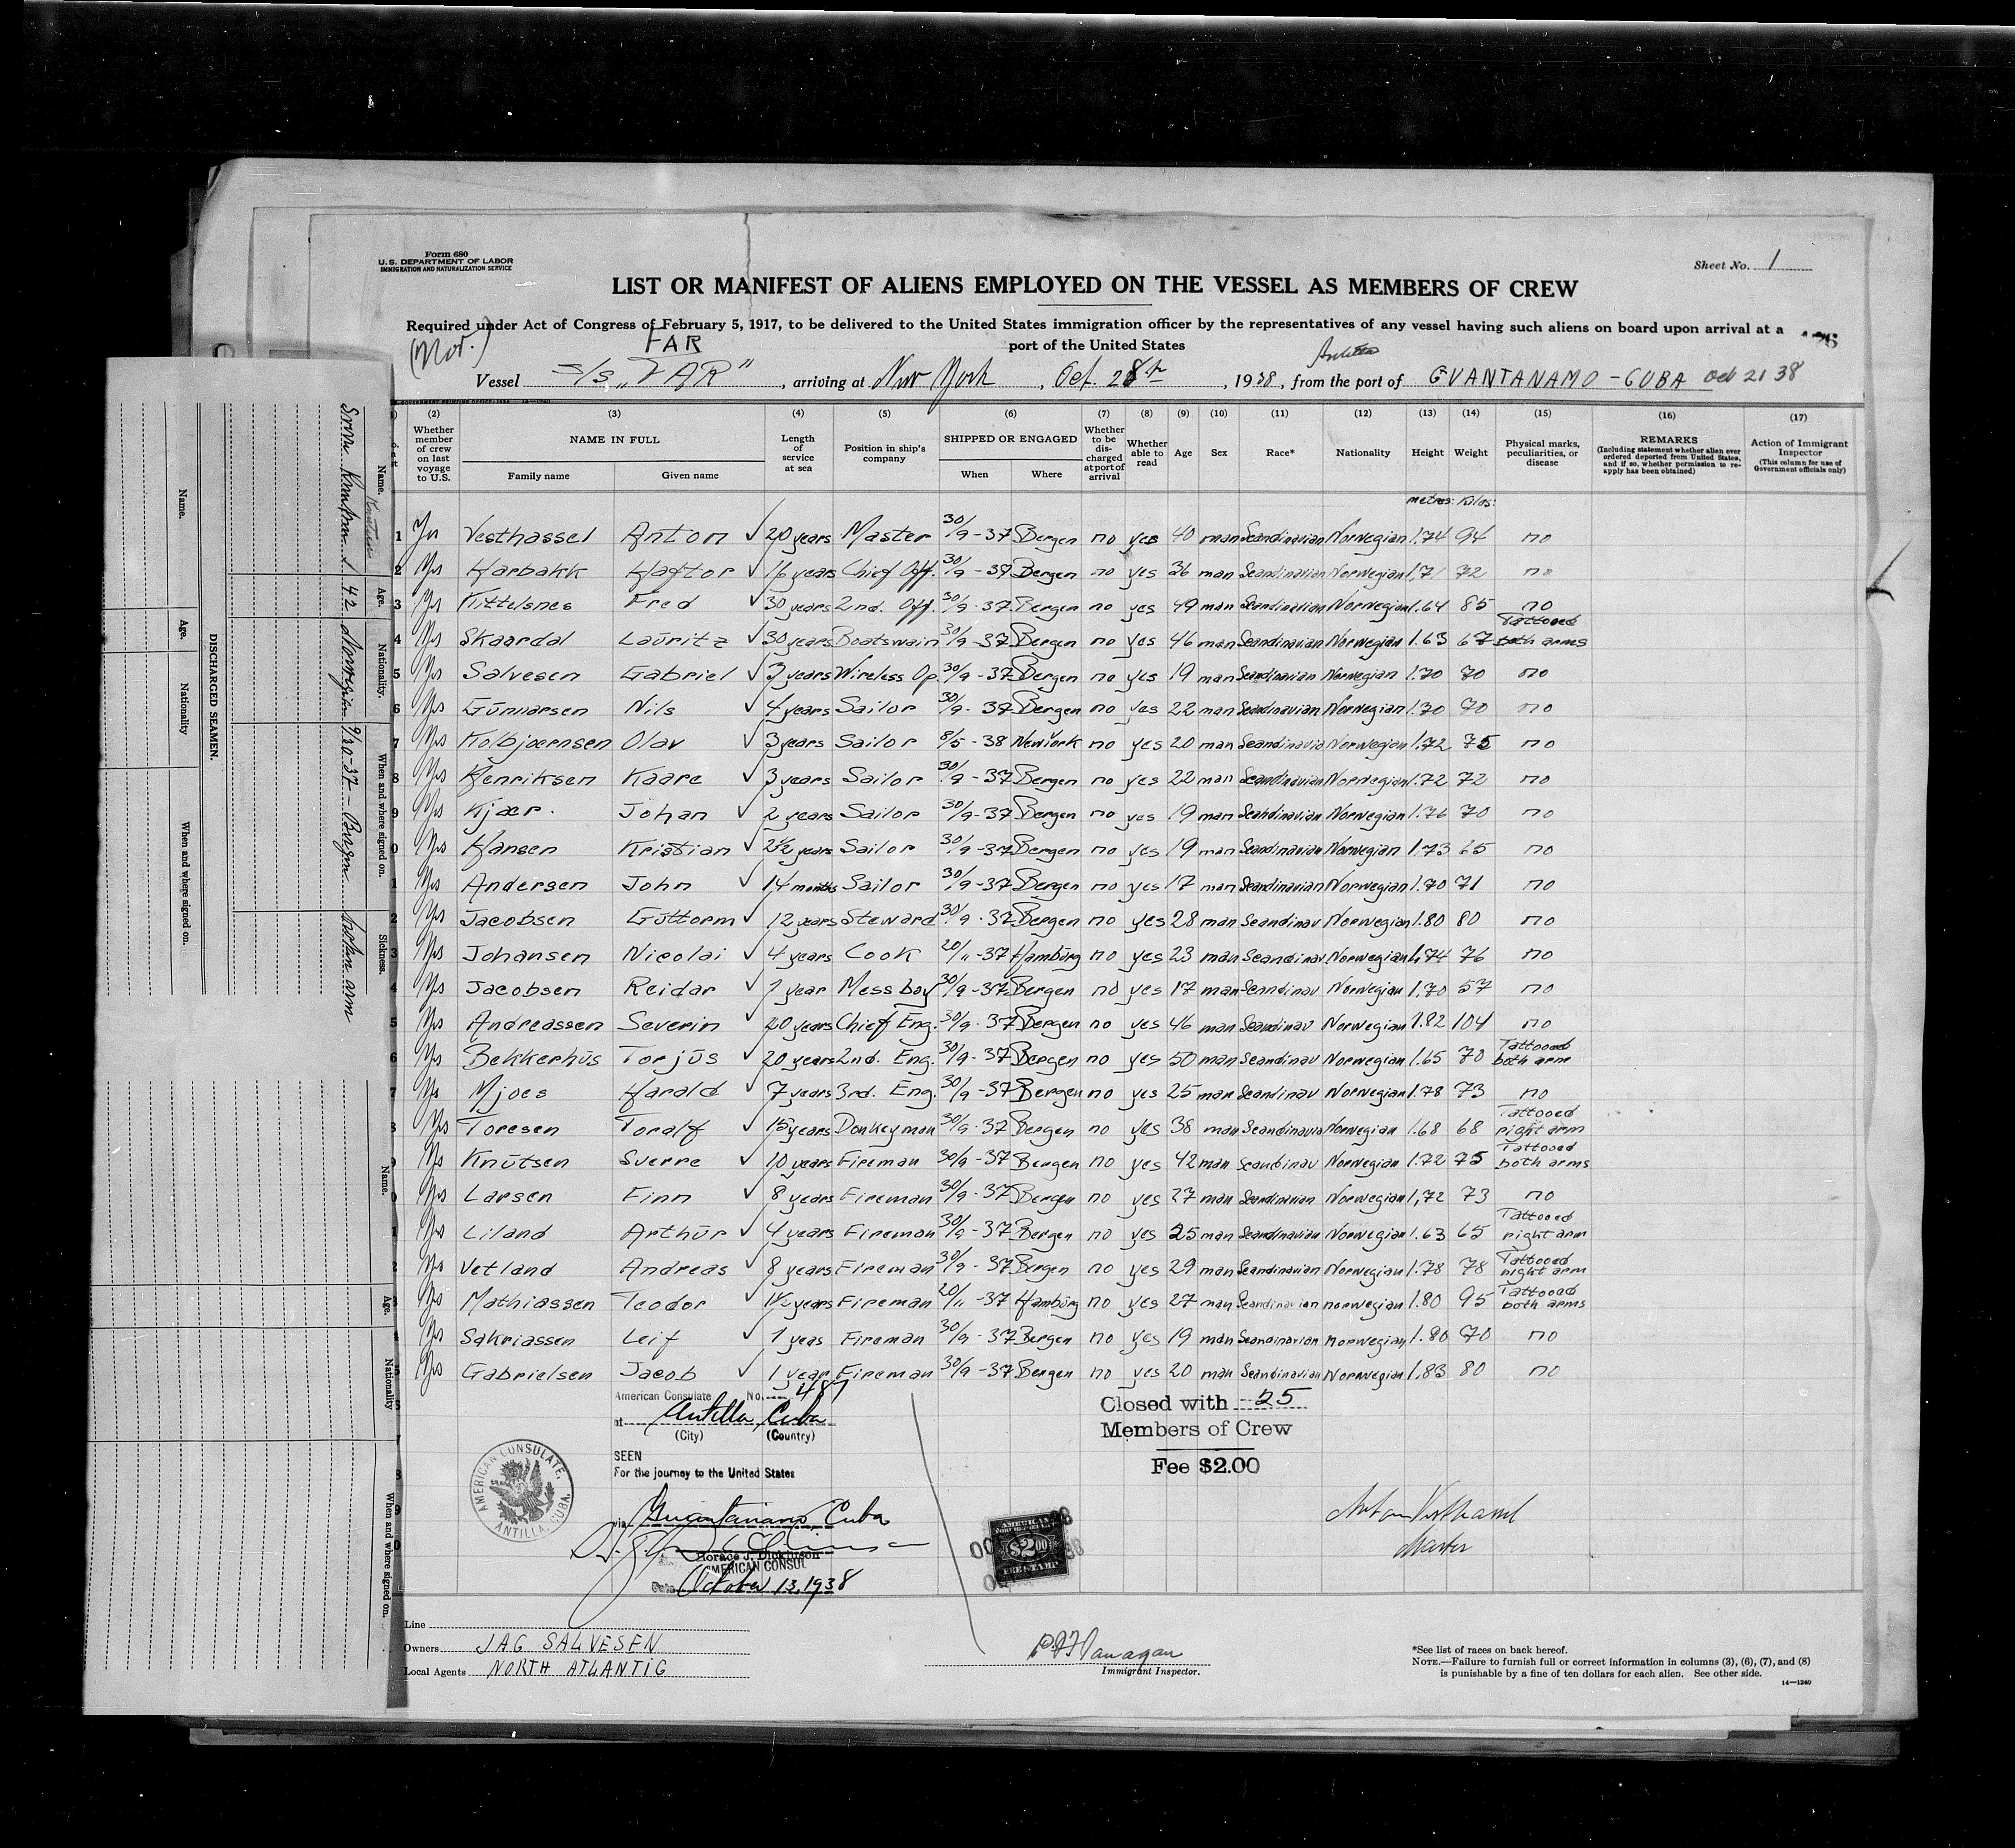 Form 680
U.S. DEPARTMENT OF LABOR
IMMIGRATION AND NATURALIZATION SERVICE
Sheet No. 1
LIST OR MANIFEST OF ALIENS EMPLOYED ON THE VESSEL AS MEMBERS OF CREW
Required under Act of Congress of February 5, 1917, to be delivered to the United States immigration officer by the representatives of any vessel having such aliens on board upon arrival at a
port of the United States
(Nor.)
FAR
Vessel S/S „FAR" , arriving at New York , Oct. 28th , 1938 , from the port of GUANTANAMO - CUBA Oct 21 38
(2) (3) (4) (5) (6) (7) (8) (9) (10) (11) (12) (13) (14) (15) (16) (17)
Whether member of crew on last voyage to U.S.
NAME IN FULL
Family name
Given name
Length of service at sea
Position in ship's company
SHIPPED OR ENGAGED
When
Where
Whether to be discharged at port of arrival
Whether able to read
Age
Sex
Race*
Nationality
Height
Weight
Physical marks, peculiarities, or disease
REMARKS
(Including statement whether alien ever ordered deported from United States, and if so, whether permission to reapply has been obtained)
Action of Immigrant Inspector
(This column for use of Government officials only)
metres: Kilos:
1 Yes Vesthassel Anton ✓ 20 years Master 30/9 - 37 Bergen no yes 40 man Scandinavian Norwegian 1.74 94 no
2 Yes Harbakk Haftor ✓ 16 years Chief Off. 30/9 - 37 Bergen no yes 36 man Scandinavian Norwegian 1.71 72 no
3 Yes Kittelsnes Fred ✓ 30 years 2nd. Off. 30/9 - 37 Bergen no yes 49 man Scandinavian Norwegian 1.64 85 no
4 Yes Skaardal Lauritz ✓ 30 years Boatswain 30/9 - 37 Bergen no yes 46 man Scandinavian Norwegian 1.63 67 Tattooed both arms
5 Yes Salvesen Gabriel ✓ 3 years Wireless Op. 30/9 - 37 Bergen no yes 19 man Scandinavian Norwegian 1.70 70 no
6 Yes Gūnnarsen Nils ✓ 4 years Sailor 30/9 - 37 Bergen no yes 22 man Scandinavian Norwegian 1.70 70 no
7 Yes Kolbjoernsen Olav ✓ 3 years Sailor 8/5 - 38 New York no yes 20 man Scandinavia Norwegian 1.72 75 no
8 Yes Henriksen Kaare ✓ 3 years Sailor 30/9 - 37 Bergen no yes 22 man Scandinavian Norwegian 1.72 72 no
9 Yes Kjær. Johan ✓ 2 years Sailor 30/9 - 37 Bergen no yes 19 man Scandinavian Norwegian 1.76 70 no
0 Yes Hansen Kristian ✓ 2½ years Sailor 30/9 - 37 Bergen no yes 19 man Scandinavian Norwegian 1.73 65 no
1 Yes Andersen John ✓ 14 months Sailor 30/9 - 37 Bergen no yes 17 man Scandinavian Norwegian 1.70 71 no
2 Yes Jacobsen Gūttorm ✓ 12 years Steward 30/9 - 37 Bergen no yes 28 man Scandinav Norwegian 1.80 80 no
3 Yes Johansen Nicolai ✓ 4 years Cook 20/11 - 37 Hambūrg no yes 23 man Scandinav Norwegian 1.74 76 no
4 Yes Jacobsen Reidar ✓ 1 year Mess boy 30/9 - 37 Bergen no yes 17 man Scandinav Norwegian 1.70 57 no
5 Yes Andreassen Severin ✓ 20 years Chief Eng. 30/9 - 37 Bergen no yes 46 man Scandinav Norwegian 1.82 104 no
6 Yes Bekkerhūs Torjūs ✓ 20 years 2nd. Eng. 30/9 - 37 Bergen no yes 50 man Scandinav Norwegian 1.65 70 Tattooed both arm
7 Yes Mjoes Harald ✓ 7 years 3rd. Eng. 30/9 - 37 Bergen no yes 25 man Scandinav Norwegian 1.78 73 no
8 Yes Toresen Toralf ✓ 15 years Donkeyman 30/9 - 37 Bergen no yes 38 man Scandinavia Norwegian 1.68 68 Tattooed right arm
9 Yes Knūtsen Sverre ✓ 10 years Fireman 30/9 - 37 Bergen no yes 42 man Scandinav Norwegian 1.72 75 Tattooed both arms
0 Yes Larsen Finn ✓ 8 years Fireman 30/9 - 37 Bergen no yes 27 man Scandinavian Norwegian 1,72 73 no
1 Yes Liland Arthūr ✓ 4 years Fireman 30/9 - 37 Bergen no yes 25 man Scandinavian Norwegian 1.63 65 Tattooed right arm
2 Yes Vetland Andreas ✓ 8 years Fireman 30/9 - 37 Bergen no yes 29 man Scandinavian Norwegian 1.78 78 Tattooed right arm
3 Yes Mathiassen Teodor ✓ 1½ years Fireman 20/11 - 37 Hambūrg no yes 27 man Scandinavian norwegian 1.80 95 Tattooed both arms
4 Yes Sakriassen Leif ✓ 1 yeas Fireman 30/9 - 37 Bergen no yes 19 man Scandinavian norwegian 1.80 70 no
5 Yes Gabrielsen Jacob ✓ 1 year Fireman 30/9 - 37 Bergen no yes 20 man Scandinavian Norwegian 1.83 80 no
American Consulate No. 487
at Antilla, Cuba
(City) (Country)
SEEN
For the journey to the United States
via Guantanamo, Cuba
Horace J. Dickinson
AMERICAN CONSUL
Date October 13, 1938
AMERICAN CONSULATE, ANTILLA, CUBA.
Closed with 25
Members of Crew
Fee $2.00
AMERICAN
$2.00
FEE STAMP
Anton Vesthassel
Master
Line
Owners JAG SALVESEN
Local Agents NORTH ATLANTIG
P.J. Flanagan
Immigrant Inspector.
*See list of races on back hereof.
NOTE.—Failure to furnish full or correct information in columns (3), (6), (7), and (8)
is punishable by a fine of ten dollars for each alien. See other side.
14—1240
DISCHARGED SEAMEN.
Name.
Age.
Nationality
When and where signed on.
Name.
Age.
Nationality.
When and where signed on.
Sickness.
Knutsen
42
Norwegian
9/30-37 - Bergen.
broken arm
Name.
Age.
Nationality
When and where signed on.